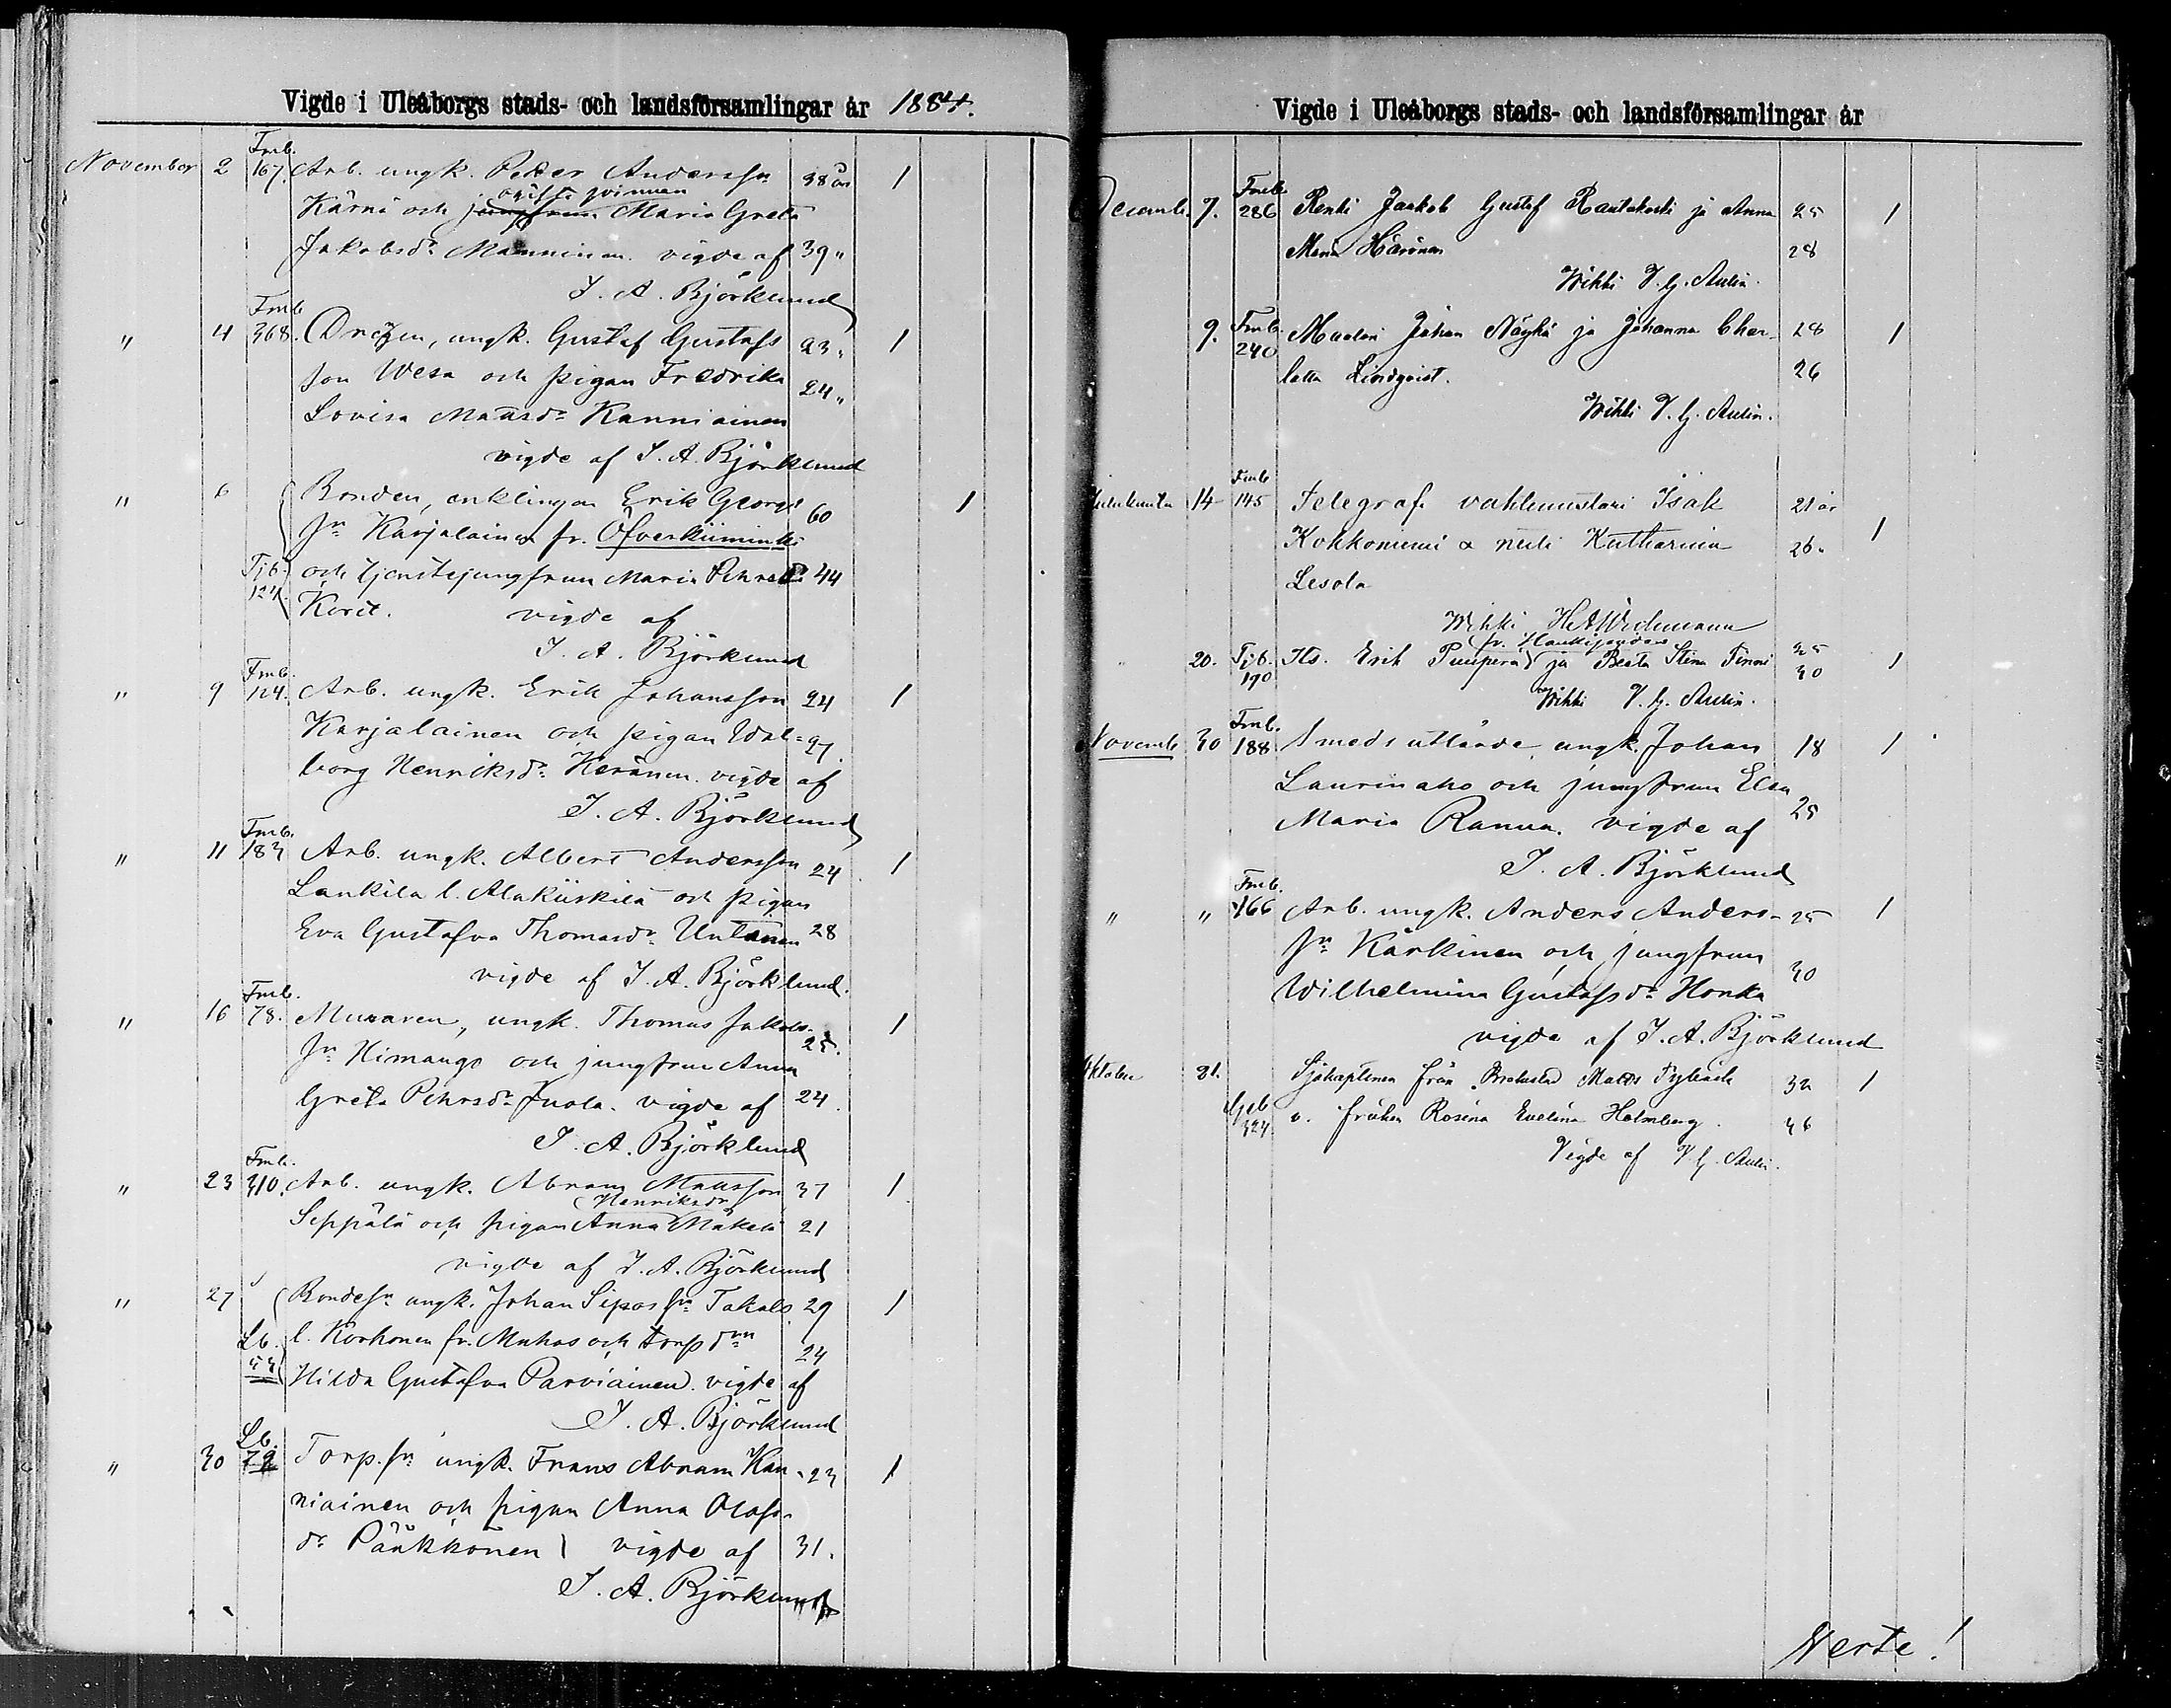 Vigde i Uleåborgs stads- och landsförsamlingar år 1884.
Fmb.
November 2 167. Arb. ungk. Peter Andersson 38 år 1
ogifta qvinnan
Kärnä och jungfrun Maria Greta
Jakobsdr Manninen. vigde af 39 "
J. A. Björklund
Fmb
" 4 368. Drägen, ungk. Gustaf Gustafs 23 " 1
son Wesa och pigan Fredrika 24 "
Lovisa Mattsdr Kanniainen
vigde af J. A. Björklund
" 6 Bonden, enklingen Erik Georgs 60 1
sn Karjalainen fr. Öfverkiiminki
Tjb. och tjenstejungfrun Maria Pehrsdr 44
124. vigde af
J. A. Björklund
Fmb.
" 9 124. Arb. ungk. Erik Johansson 24 1
Karjalainen och pigan Wal- 27.
borg Henriksdr Keränen. vigde af
J. A. Björklund
Fmb.
" 11 183 Arb. ungk. Albert Andersson 24 1
Lankila l. Alakiiskilä och pigan
Eva Gustafva Thomasdr Untanen 28
vigde af J. A. Björklund.
Fmb.
" 16 78. Muraren, ungk. Thomas Jakobs- 1
sn Himango och jungfrun Anna 25.
Greta Pehrsdr Juola. vigde af 24.
J. A. Björklund
Fmb.
" 23 310. Arb. ungk. Abram Mattsson 37 1
Henriksdr
Seppälä och pigan Anna Mäkelä 21
vigde af J. A. Björklund
" 27 Bondesn ungk. Johan Siposson Takalo 29 1
Lb. l. Korhonen fr. Muhos och torp.drn 24
53 Hilda Gustafva Parviainen. vigde af
J. A. Björklund
Lb.
" 30 79 Torp.sn ungk. Frans Abram Kan- 23 1
niainen och pigan Anna Olofs-
dr Pänkkönen vigde af 31.
J. A. Björklund
Vigde i Uleåborgs stads- och landsförsamlingar år
Fmb.
Decemb. 7. 286 Renki Jaakob Gustaf Rautakoski ja Anna 25 1
Maria Härönen 28
Wihki V. G. Aulin.
9. Fmb. Maalari Johan Näykä ja Johanna Char- 28 1
240 lotta Lindqvist. 26
Wihki V. G. Aulin.
Fmb
14 145 Telegrafi vahtimestari Isak 21 år
Kokkoniemi & neiti Katharina 26. 1
Lesola
Wihki
fr. Haukipudas
20. Tjb. Its. Erik Puupera ja Beata Stina Finni 25 1
190 30
Wihki V. G. Aulin.
Fmb.
Novemb. 30 188. Smeds utlärde, ungk. Johan 18 1
Laurinaho och jungfrun Elsa
Maria Ranua. vigde af 25
J. A. Björklund
Fmb.
" " 166 Arb. ungk. Anders Anders- 25 1
sn Kärkinen och jungfrun
Wilhelmina Gustafsdr Honka 30
vigde af J. A. Björklund
Oktober 31. Sjökaptenen från Brahestad Matts 32 1
324 o. fröken Rosina Evelina Holmberg. 36
Vigde af V. G. Aulin.
Verte!